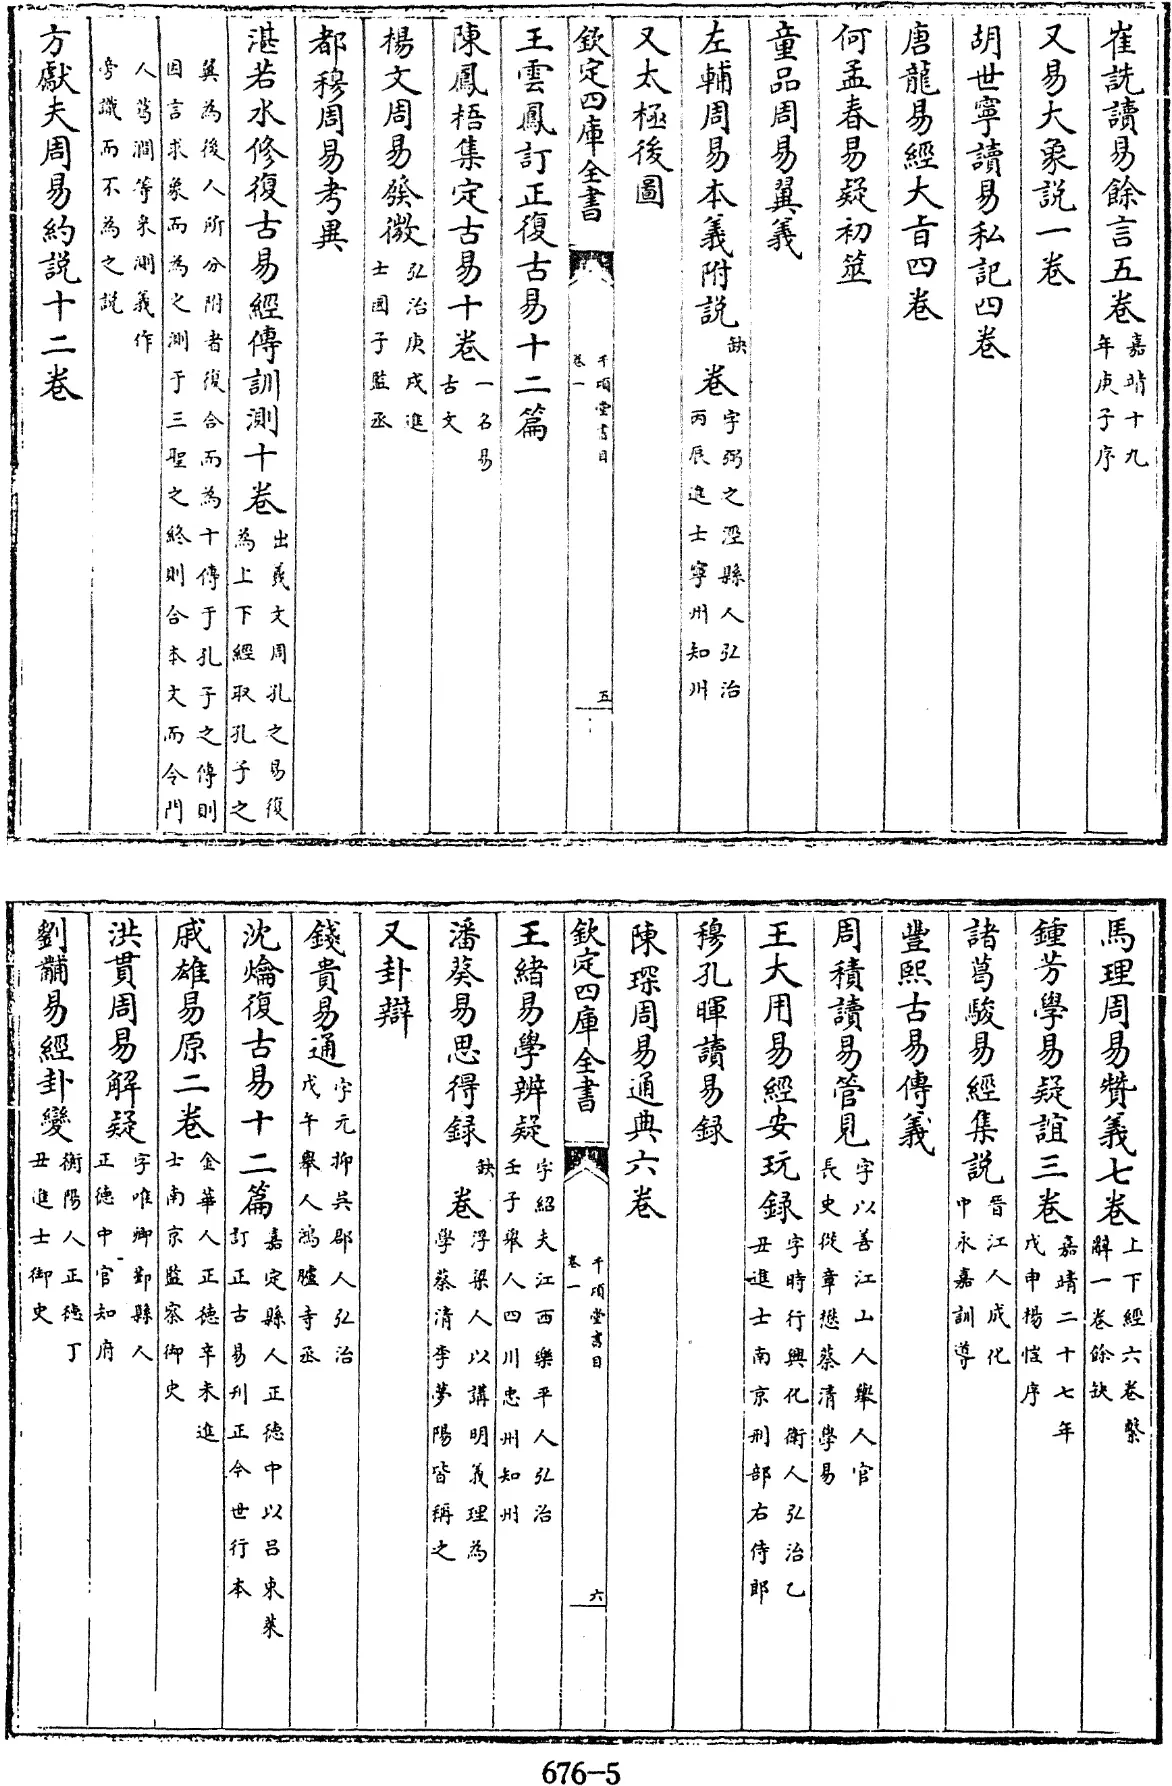 崔詵讀易餘言五卷嘉靖十九年庚子序
又易大象説一卷
胡世寧讀易私記四卷
唐龍易經大旨四卷
何孟春易疑初筮
童品周易翼義
左輔周易本義附説缺卷字弼之涇縣人弘治丙辰進士寧州知州
又太極後圖
欽定四庫全書 千頃堂書目卷一 五
王雲鳳訂正復古易十二篇
陳鳳梧集定古易十卷一名易古文
楊文周易發微弘治庚戌進士國子監丞
都穆周易考異
湛若水修復古易經傳訓測十卷出羲文周孔之易復為上下經取孔子之
翼為後人所分附者復合而為十傳于孔子之傳則因言求象而為之測于三聖之經則合本文而令門
人葛澗等采測義作旁識而不為之説
方獻夫周易約説十二卷
馬理周易贊義七卷上下經六卷繫辭一卷餘缺
鍾芳學易疑誼三卷嘉靖二十七年戊申楊愷序
諸葛駿易經集説晉江人成化中永嘉訓導
豐熙古易傳義
周積讀易管見字以善江山人舉人官長史從章懋蔡清學易
王大用易經安玩録字時行興化衛人弘治乙丑進士南京刑部右侍郎
穆孔暉讀易録
陳琛周易通典六卷
欽定四庫全書 千頃堂書目卷一 六
王緒易學辨疑字紹夫江西樂平人弘治壬子舉人四川忠州知州
潘葵易思得録缺卷浮梁人以講明義理為學蔡清李夢陽皆稱之
又卦辯
錢貴易通字元抑吳郡人弘治戊午舉人鴻臚寺丞
沈爚復古易十二篇嘉定縣人正德中以呂東萊訂正古易刊正今世行本
戚雄易原二卷金華人正德辛未進士南京監察御史
洪貫周易解疑字唯卿鄞縣人正德中官知府
劉黼易經卦變衡陽人正德丁丑進士御史
676-5